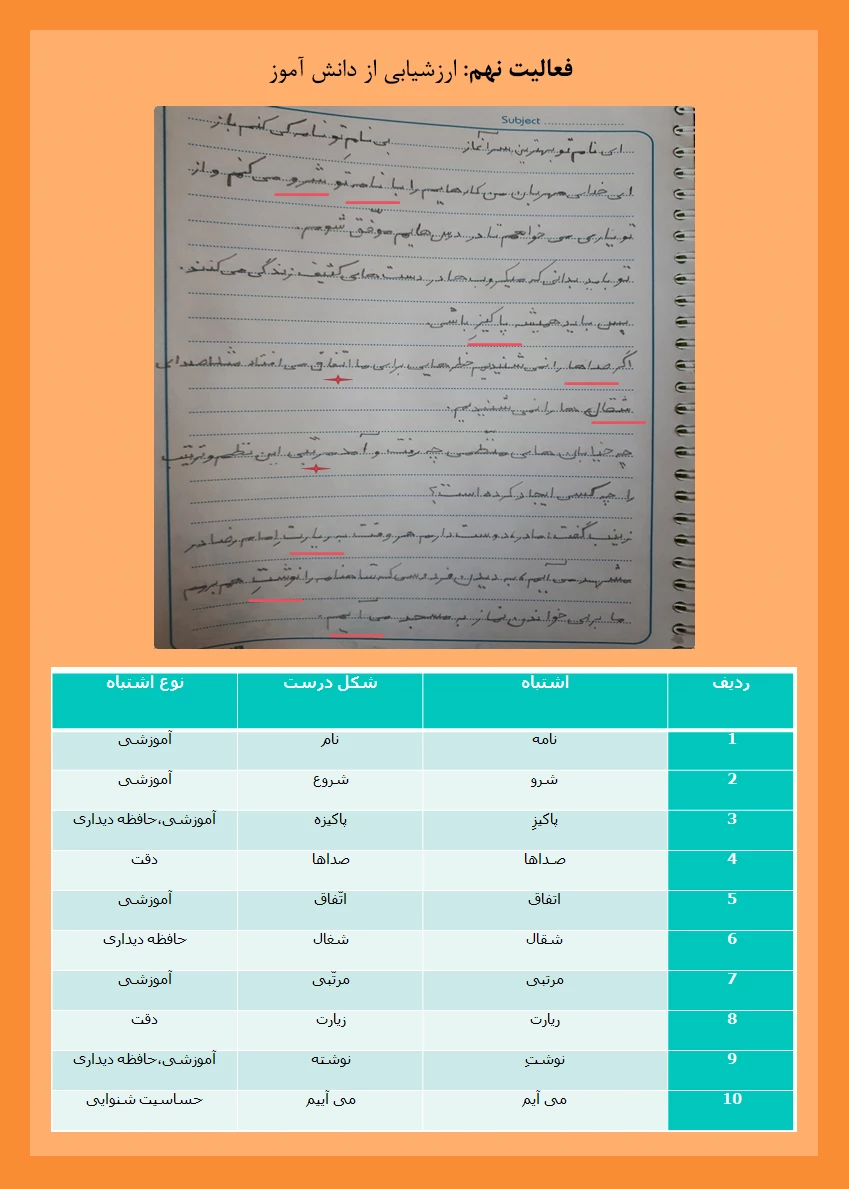 فعالیت نهم: ارزشیابی از دانش آموز
Subject
ای نام تو بهترین سرآغاز بی نامِ تو نامه کی کنم باز
ای خدای مهربان من کارهایم را با نامه تو شرو می کنم و از
تو یاری می خواهم تا در درس هایم موفّق شوم.
تو باید بدانی که میکروب ها در دست های کثیف زندگی می کنند.
پس باید همیشه پاکیزِ باشی.
اگر صداها را نمی شنیدیم خطرهایی برای ما اتفاق می افتاد مثلا صدای
شقال ها را نمی شنیدیم.
چه خیابان های منظّمی چه رفت و آمد مرتبی این نظم و ترتیب
را چه کسی ایجاد کرده است؟
زینب گفت: مادر، دوست دارم هر وقت به ریارت امام رضا در
مشهد می آییم، به دیدن فردوسی که شاهنامه را نوشتِ هم برویم
ما برای خواندن نماز به مسجد می آیم.
ردیف اشتباه شکل درست نوع اشتباه
1 نامه نام آموزشی
2 شرو شروع آموزشی
3 پاکیزِ پاکیزه آموزشی،حافظه دیداری
4 صداها صداها دقت
5 اتفاق اتّفاق آموزشی
6 شقال شغال حافظه دیداری
7 مرتبی مرتّبی آموزشی
8 ریارت زیارت دقت
9 نوشتِ نوشته آموزشی،حافظه دیداری
10 می آیم می آییم حساسیت شنوایی